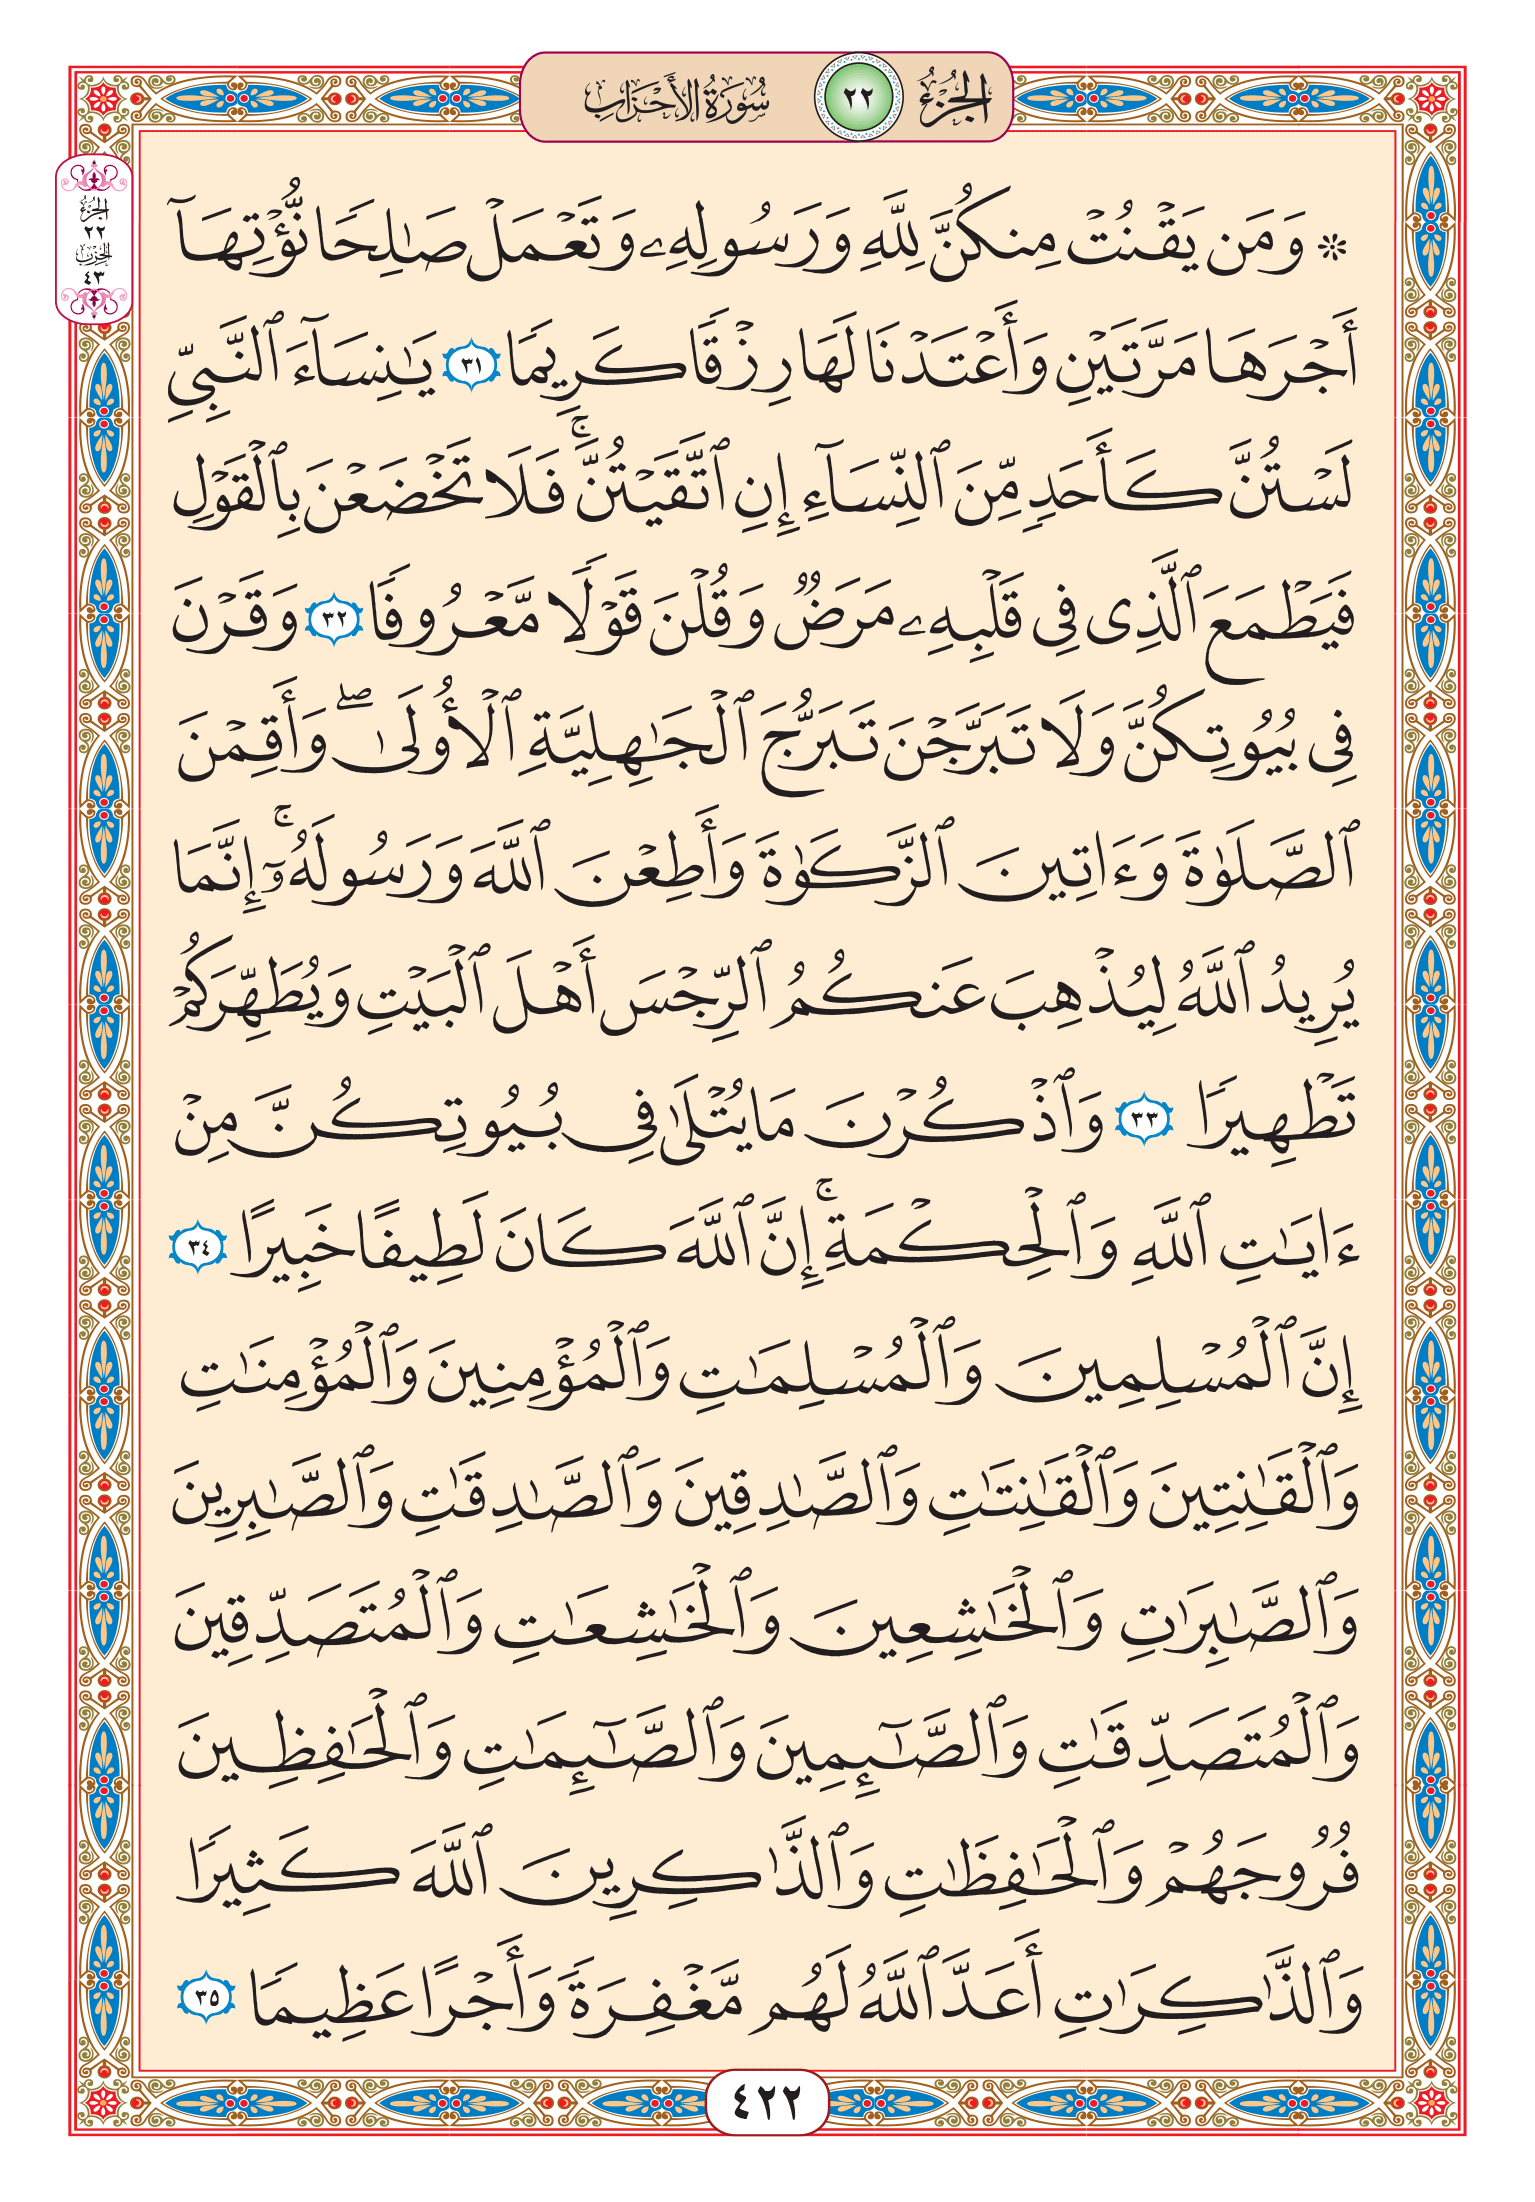 الجُزْءُ ٢٢ سُورَةُ الأَحْزَاب
الجزء
٢٢
الحزب
٤٣
۞ وَمَن يَقْنُتْ مِنكُنَّ لِلَّهِ وَرَسُولِهِۦ وَتَعْمَلْ صَـٰلِحًا نُّؤْتِهَآ
أَجْرَهَا مَرَّتَيْنِ وَأَعْتَدْنَا لَهَا رِزْقًا كَرِيمًا ٣١ يَـٰنِسَآءَ ٱلنَّبِىِّ
لَسْتُنَّ كَأَحَدٍ مِّنَ ٱلنِّسَآءِ إِنِ ٱتَّقَيْتُنَّ ۚ فَلَا تَخْضَعْنَ بِٱلْقَوْلِ
فَيَطْمَعَ ٱلَّذِى فِى قَلْبِهِۦ مَرَضٌ وَقُلْنَ قَوْلًا مَّعْرُوفًا ٣٢ وَقَرْنَ
فِى بُيُوتِكُنَّ وَلَا تَبَرَّجْنَ تَبَرُّجَ ٱلْجَـٰهِلِيَّةِ ٱلْأُولَىٰ ۖ وَأَقِمْنَ
ٱلصَّلَوٰةَ وَءَاتِينَ ٱلزَّكَوٰةَ وَأَطِعْنَ ٱللَّهَ وَرَسُولَهُۥٓ ۚ إِنَّمَا
يُرِيدُ ٱللَّهُ لِيُذْهِبَ عَنكُمُ ٱلرِّجْسَ أَهْلَ ٱلْبَيْتِ وَيُطَهِّرَكُمْ
تَطْهِيرًا ٣٣ وَٱذْكُرْنَ مَا يُتْلَىٰ فِى بُيُوتِكُنَّ مِنْ
ءَايَـٰتِ ٱللَّهِ وَٱلْحِكْمَةِ ۚ إِنَّ ٱللَّهَ كَانَ لَطِيفًا خَبِيرًا ٣٤
إِنَّ ٱلْمُسْلِمِينَ وَٱلْمُسْلِمَـٰتِ وَٱلْمُؤْمِنِينَ وَٱلْمُؤْمِنَـٰتِ
وَٱلْقَـٰنِتِينَ وَٱلْقَـٰنِتَـٰتِ وَٱلصَّـٰدِقِينَ وَٱلصَّـٰدِقَـٰتِ وَٱلصَّـٰبِرِينَ
وَٱلصَّـٰبِرَٰتِ وَٱلْخَـٰشِعِينَ وَٱلْخَـٰشِعَـٰتِ وَٱلْمُتَصَدِّقِينَ
وَٱلْمُتَصَدِّقَـٰتِ وَٱلصَّـٰٓئِمِينَ وَٱلصَّـٰٓئِمَـٰتِ وَٱلْحَـٰفِظِينَ
فُرُوجَهُمْ وَٱلْحَـٰفِظَـٰتِ وَٱلذَّٰكِرِينَ ٱللَّهَ كَثِيرًا
وَٱلذَّٰكِرَٰتِ أَعَدَّ ٱللَّهُ لَهُم مَّغْفِرَةً وَأَجْرًا عَظِيمًا ٣٥
٤٢٢